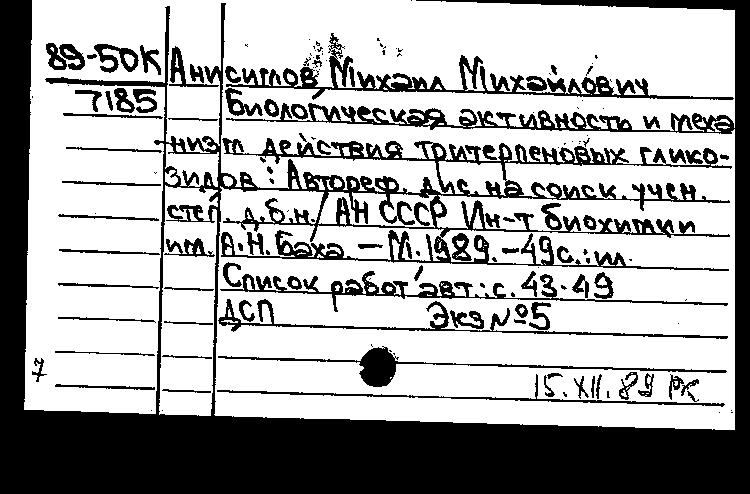 89-50К Анисимов Михаил Михайлович
7185 Биологическая активность и меха-
низм действия тритерпеновых глико-
зидов : Автореф. дис. на соиск. учен.
степ. д.б.н. / АН СССР Ин-т биохимии
им. А.Н. Баха. – М. 1989. – 49с. : ил.
Список работ авт.: с. 43-49
ДСП Экз №5
7
15.XII.89 РК